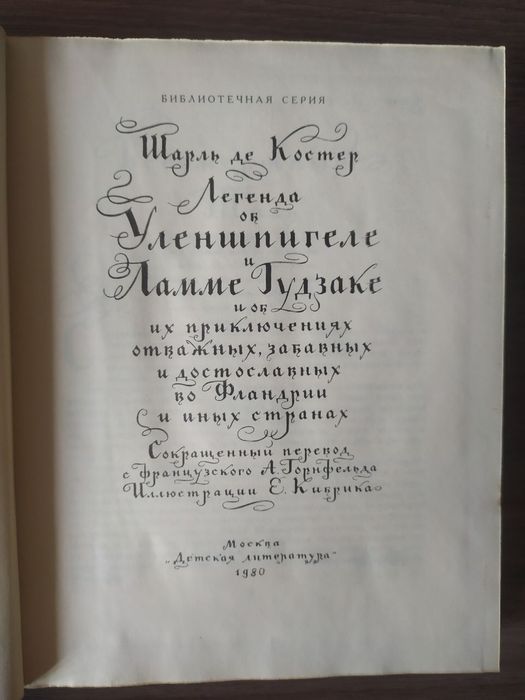 БИБЛИОТЕЧНАЯ СЕРИЯ
Шарль де Костер
Легенда
об
Уленшпигеле
и
Ламме Гудзаке
и об
их приключениях
отважных, забавных
и достославных
во Фландрии
и иных странах
Сокращенный перевод
с французского А. Горнфельда
Иллюстрации Е. Кибрика
Москва
„Детская литература"
1980